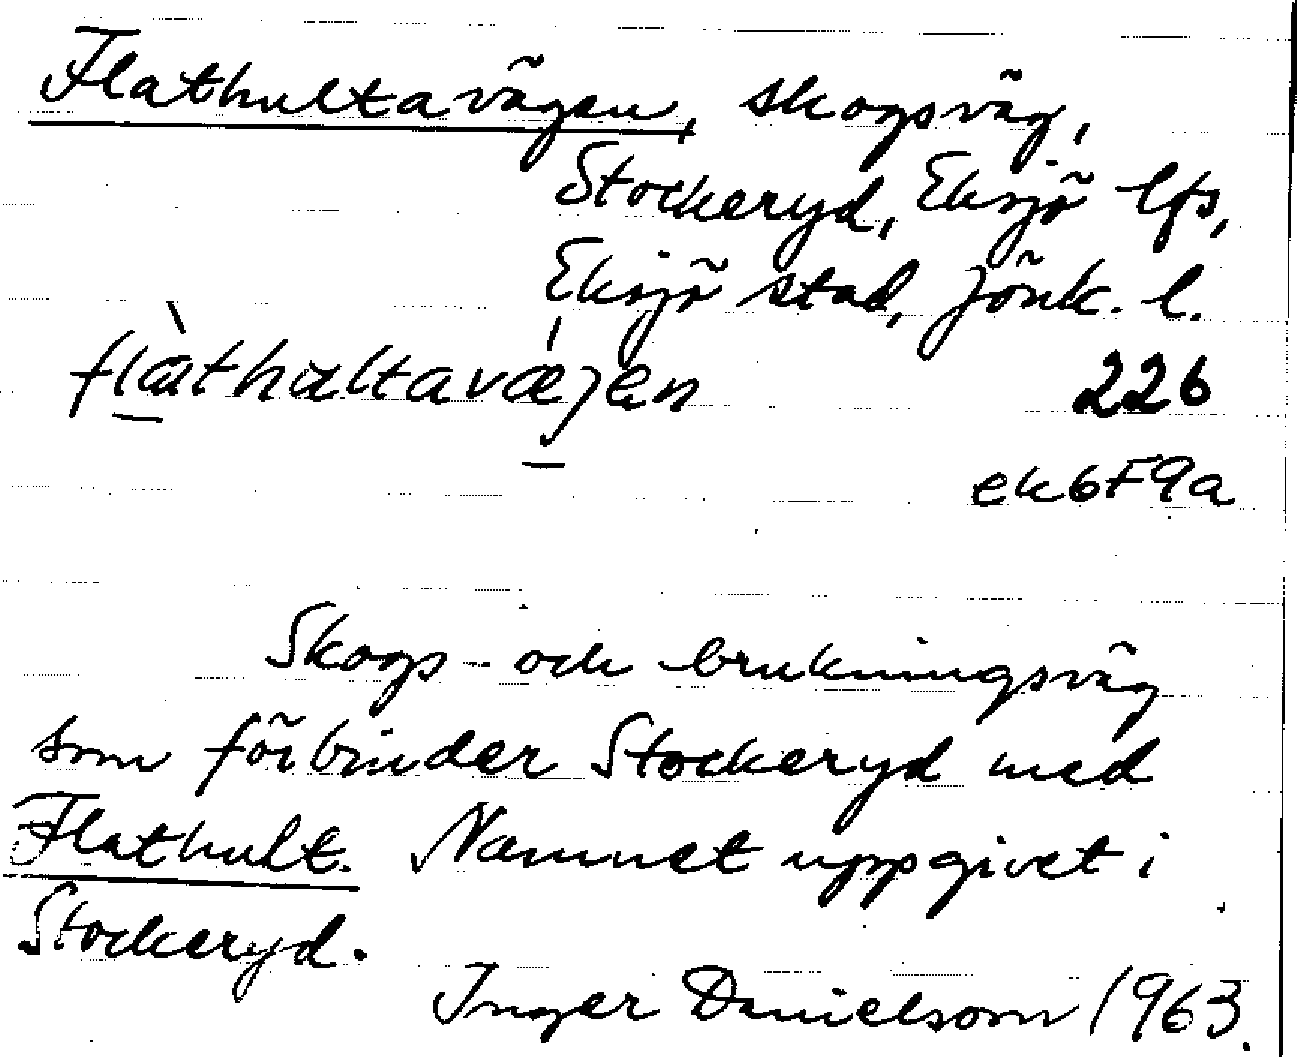 Flathultavägen, skogsväg,
Stockeryd, Eksjö lfs,
Eksjö stad, Jönk. l.
flàthultavǽjen 226
ek6F9a
Skogs- och brukningsväg
som förbinder Stockeryd med
Flathult. Namnet uppgivet i
Stockeryd.
Inger Danielsson 1963.